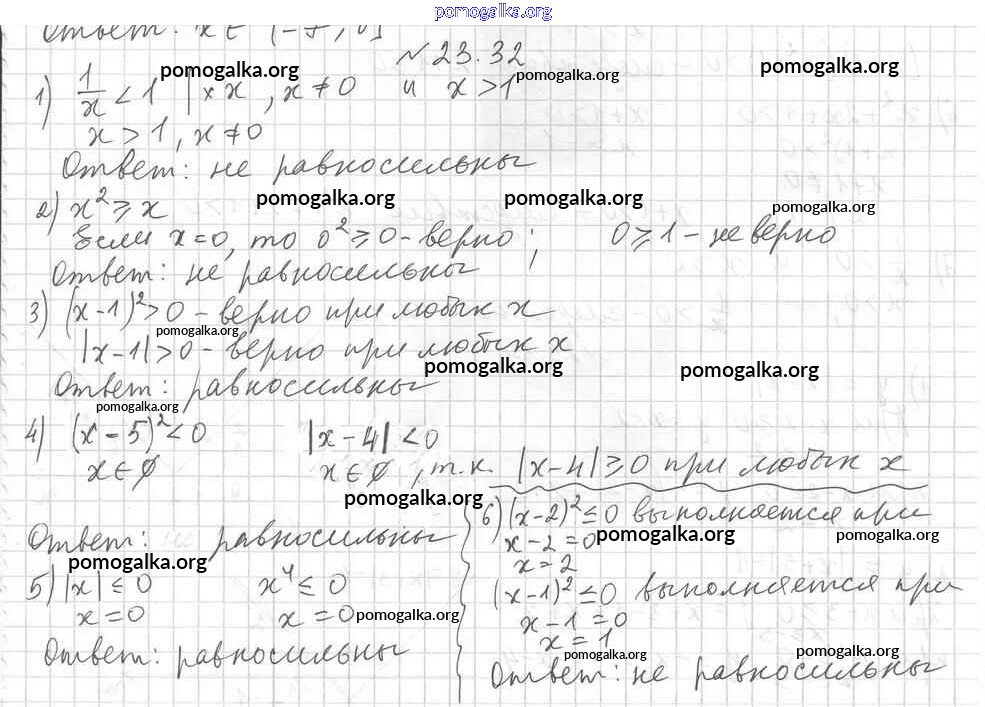 pomogalka.org
Ответ: x ∈ [-7; 0]
№ 23.32
pomogalka.org pomogalka.org pomogalka.org
1) 1/x < 1 | × x, x ≠ 0 и x > 1
x > 1, x ≠ 0
Ответ: не равносильны
pomogalka.org pomogalka.org pomogalka.org
2) x² ⩾ x
Если x = 0, то 0² ⩾ 0 - верно; 0 ⩾ 1 - не верно
Ответ: не равносильны
3) (x-1)² > 0 - верно при любых x
pomogalka.org
|x-1| > 0 - верно при любых x
pomogalka.org pomogalka.org
Ответ: равносильны
pomogalka.org
4) (x-5)² < 0 |x-4| < 0
x ∈ ∅ x ∈ ∅, т.к. |x-4| ⩾ 0 при любых x
pomogalka.org
Ответ: равносильны
pomogalka.org
5) |x| ≤ 0 x⁴ ≤ 0
x = 0 x = 0 pomogalka.org
Ответ: равносильны
6) (x-2)² ≤ 0 выполняется при
x-2 = 0 pomogalka.org pomogalka.org
x = 2
(x-1)² ≤ 0 выполняется при
x-1 = 0
x = 1
pomogalka.org pomogalka.org
Ответ: не равносильны